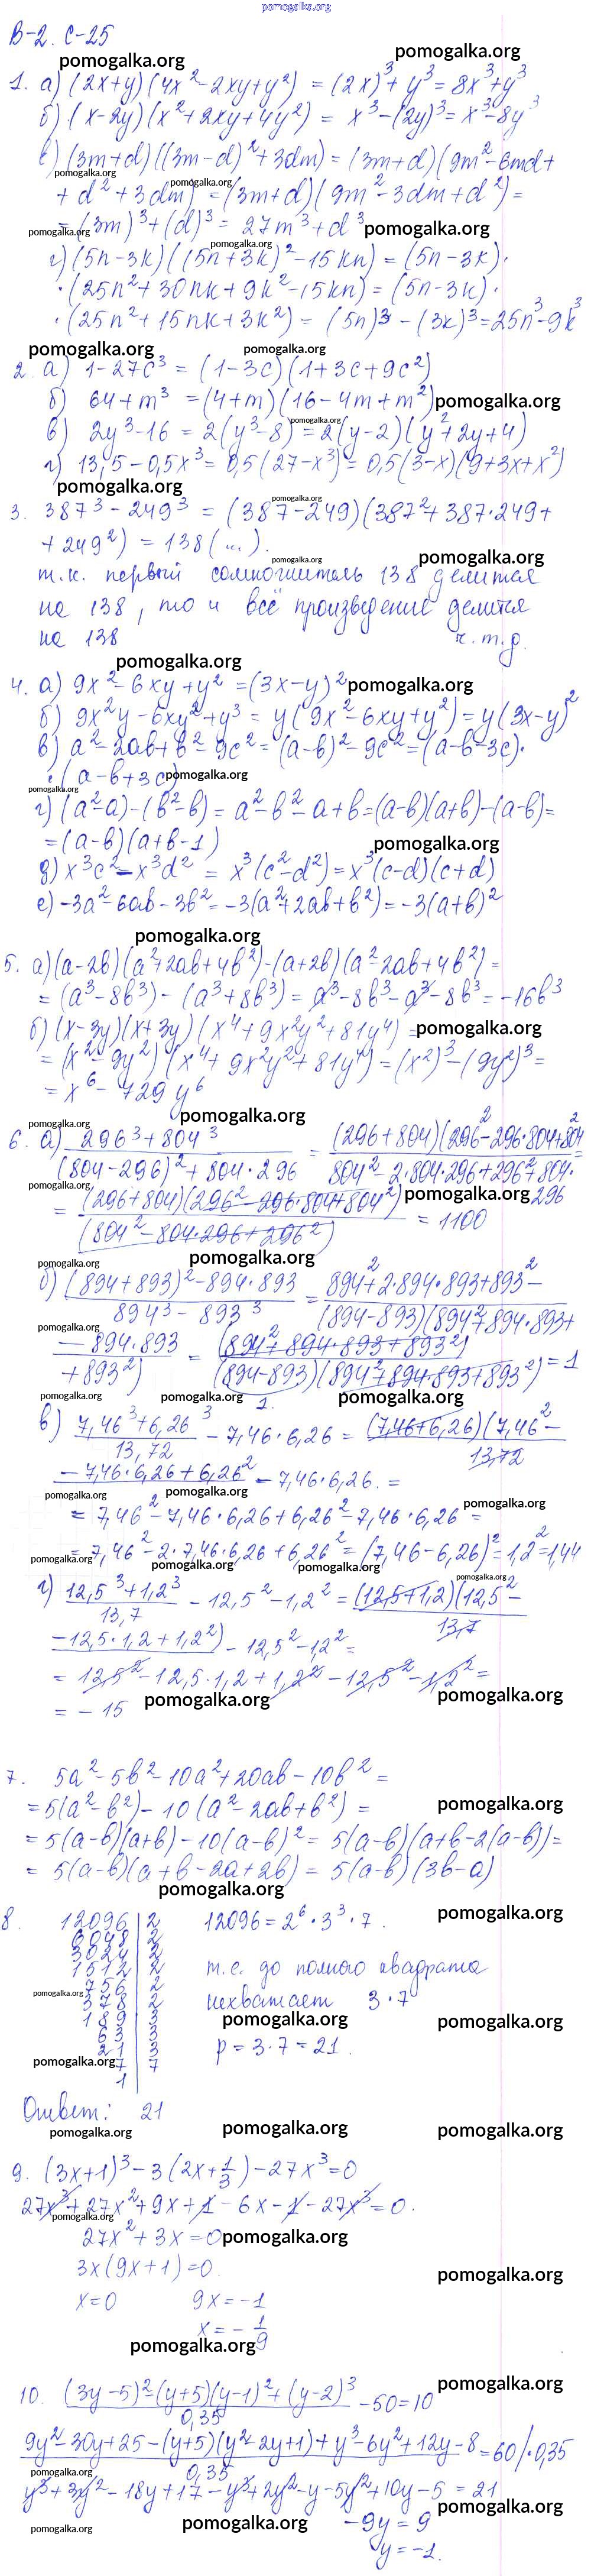 pomogalka.org
В-2. С-25
1. а) (2x+y)(4x²-2xy+y²) = (2x)³+y³ = 8x³+y³
б) (x-2y)(x²+2xy+4y²) = x³-(2y)³ = x³-8y³
в) (3m+d)((3m-d)²+3dm) = (3m+d)(9m²-6md+
+d²+3dm) = (3m+d)(9m²-3dm+d²) =
= (3m)³+(d)³ = 27m³+d³
г) (5n-3k)((5n+3k)²-15kn) = (5n-3k)·
·(25n²+30nk+9k²-15kn) = (5n-3k)·
·(25n²+15nk+3k²) = (5n)³-(3k)³=25n³-9k³
2. а) 1-27c³ = (1-3c)(1+3c+9c²)
б) 64+m³ = (4+m)(16-4m+m²)
в) 2y³-16 = 2(y³-8) = 2(y-2)(y²+2y+4)
г) 13,5-0,5x³ = 0,5(27-x³) = 0,5(3-x)(9+3x+x²)
3. 387³-249³ = (387-249)(387²+387·249+
+249²) = 138(...).
т.к. первый сомножитель 138 делится
на 138, то и всё произведение делится
на 138 ч.т.д.
4. а) 9x²-6xy+y² = (3x-y)²
б) 9x²y-6xy²+y³ = y(9x²-6xy+y²) = y(3x-y)²
в) a²-2ab+b²-9c² = (a-b)²-9c² = (a-b-3c)·
·(a-b+3c)
г) (a²-a)-(b²-b) = a²-b²-a+b=(a-b)(a+b)-(a-b)=
=(a-b)(a+b-1)
д) x³c²-x³d² = x³(c²-d²) = x³(c-d)(c+d)
е) -3a²-6ab-3b² = -3(a²+2ab+b²) = -3(a+b)²
5. а) (a-2b)(a²+2ab+4b²)-(a+2b)(a²-2ab+4b²) =
= (a³-8b³)-(a³+8b³) = a³-8b³-a³-8b³ = -16b³
б) (x-3y)(x+3y)(x⁴+9x²y²+81y⁴) =
= (x²-9y²)(x⁴+9x²y²+81y⁴) = (x²)³-(9y²)³ =
= x⁶-729y⁶
6. а) 296³+804³ / (804-296)²+804·296 = (296+804)(296²-296·804+804² / 804²-2·804·296+296²+804·296 =
= (296+804)(296²-296·804+804²) / (804²-804·296+296²) = 1100
б) (894+893)²-894·893 / 894³-893³ = 894²+2·894·893+893²- / (894-893)(894²+894·893+
-894·893 / +893²) = (894²+894·893+893²) / (894-893)(894²+894·893+893²) = 1
1.
в) 7,46³+6,26³ / 13,72 - 7,46·6,26 = (7,46+6,26)(7,46²- / 13,72
-7,46·6,26+6,26² - 7,46·6,26. =
= 7,46²-7,46·6,26+6,26²-7,46·6,26 =
= 7,46²-2·7,46·6,26+6,26² = (7,46-6,26)²=1,2²=1,44
г) 12,5³+1,2³ / 13,7 - 12,5²-1,2² = (12,5+1,2)(12,5²- / 13,7
-12,5·1,2+1,2²) - 12,5²-1,2² =
= 12,5²-12,5·1,2+1,2²-12,5²-1,2² =
= -15
7. 5a²-5b²-10a²+20ab-10b² =
=5(a²-b²)-10(a²-2ab+b²) =
=5(a-b)(a+b)-10(a-b)² = 5(a-b)(a+b-2(a-b))=
= 5(a-b)(a+b-2a+2b) = 5(a-b)(3b-a)
8. 12096 | 2 12096=2⁶·3³·7.
6048 | 2
3024 | 2
1512 | 2 т.е. до полного квадрата
756 | 2
378 | 2 нехватает 3·7
189 | 3
63 | 3
21 | 3 p = 3·7 = 21.
7 | 7
1
Ответ: 21
9. (3x+1)³-3(2x+1/3)-27x³=0
27x³+27x²+9x+1-6x-1-27x³=0.
27x²+3x=0
3x(9x+1)=0
x=0 9x=-1
x=-1/9
10. (3y-5)²-(y+5)(y-1)²+(y-2)³ / 0,35 - 50=10
9y²-30y+25-(y+5)(y²-2y+1)+y³-6y²+12y-8 / 0,35 = 60 /·0,35
y³+3y²-18y+17-y³+2y²-y-5y²+10y-5 = 21
-9y = 9
y=-1.